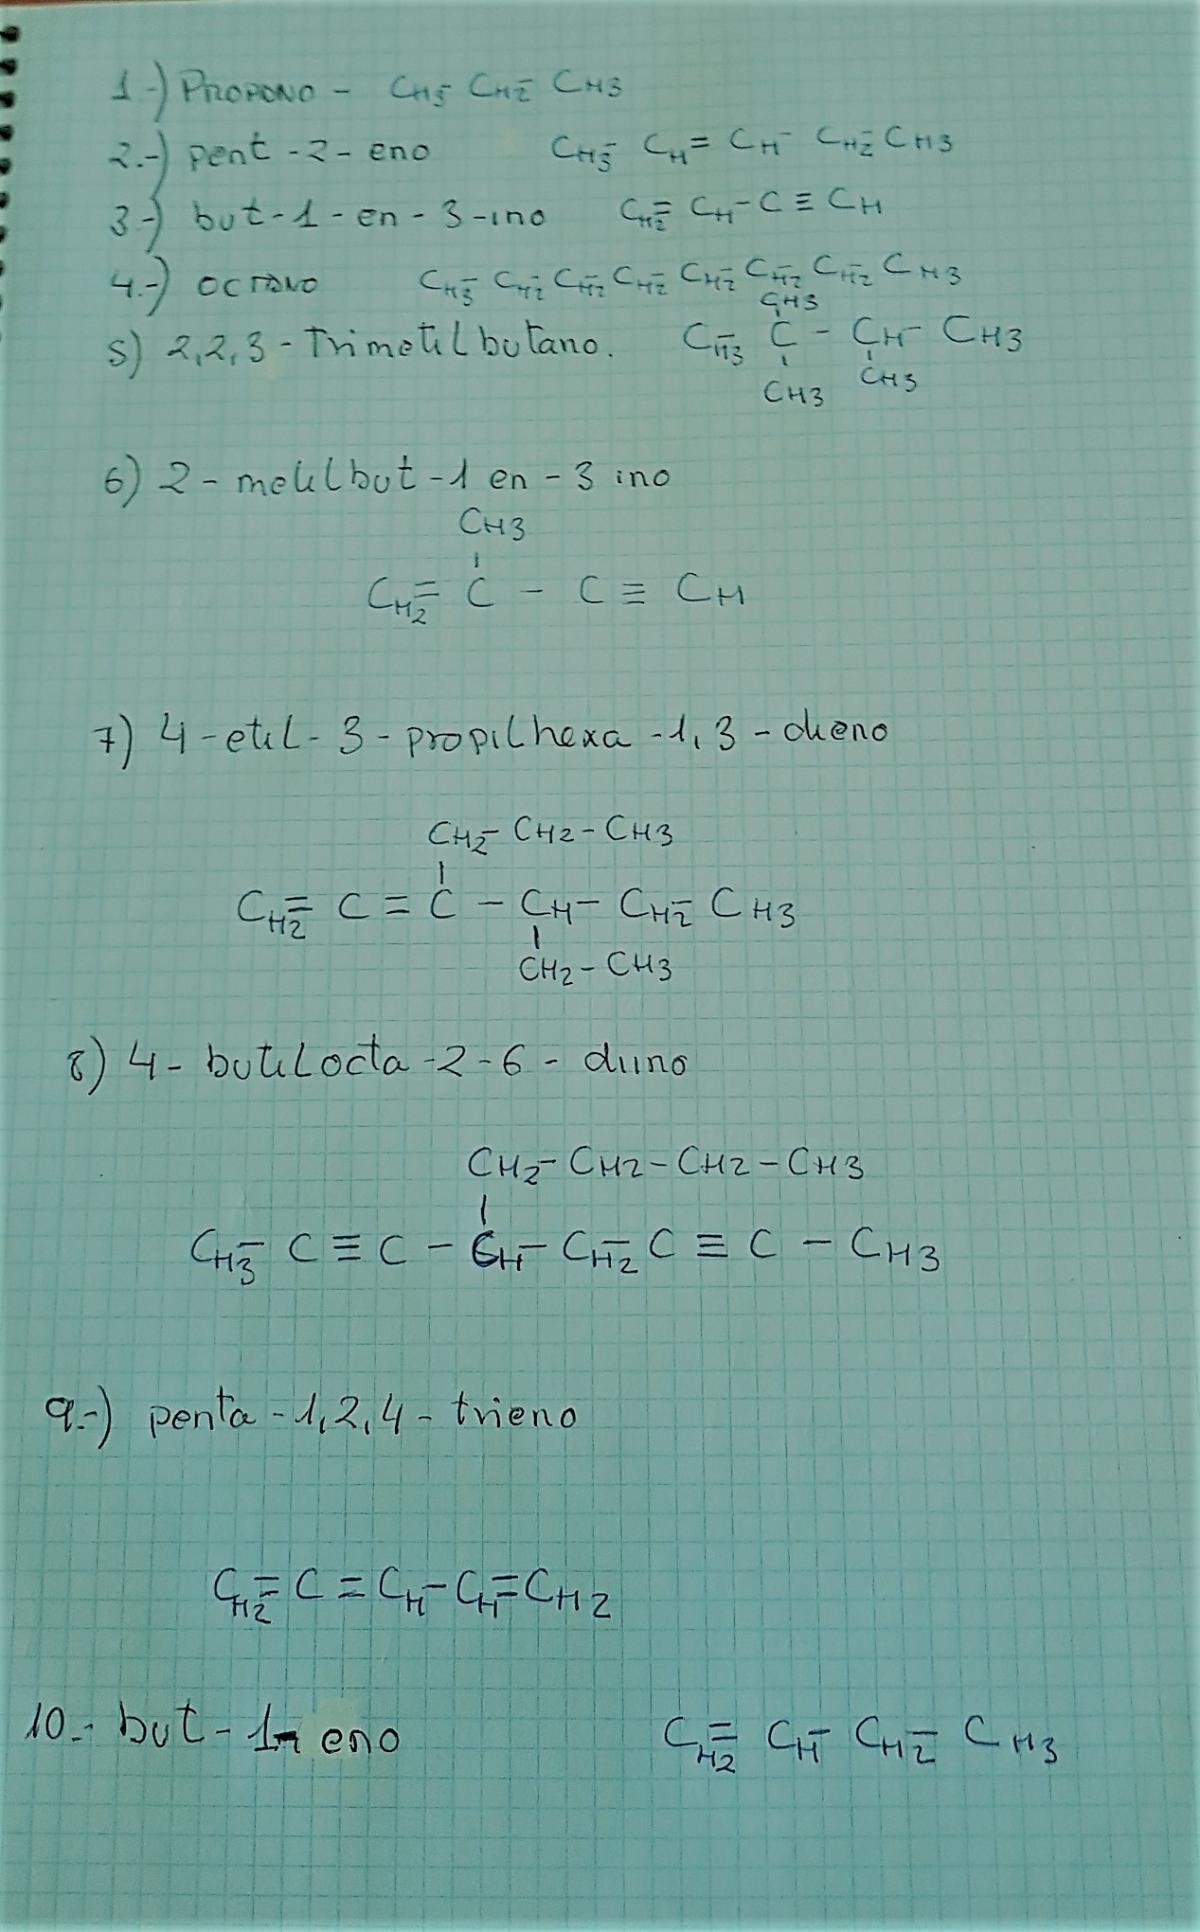 1.-) PROPONO - CH3- CH2- CH3
2.-) pent -2- eno CH3- CH= CH- CH2- CH3
3-) but-1-en-3-ino CH2= CH-C≡CH
4.-) OCTANO CH3- CH2- CH2- CH2- CH2- CH2- CH2- CH3
CH3
5) 2,2,3-Trimetilbutano. CH3- C - CH- CH3
CH3 CH3
6) 2-metilbut-1 en-3 ino
CH3
CH2= C - C ≡ CH
7) 4-etil-3-propilhexa-1,3-dieno
CH2- CH2-CH3
CH2= C = C - CH- CH2- CH3
CH2-CH3
8) 4-butilocta-2-6-diino
CH2- CH2-CH2-CH3
CH3- C ≡ C - CH- CH2- C ≡ C - CH3
9.-) penta-1,2,4-trieno
CH2= C = CH- CH= CH2
10.- but-1- eno CH2= CH- CH2- CH3